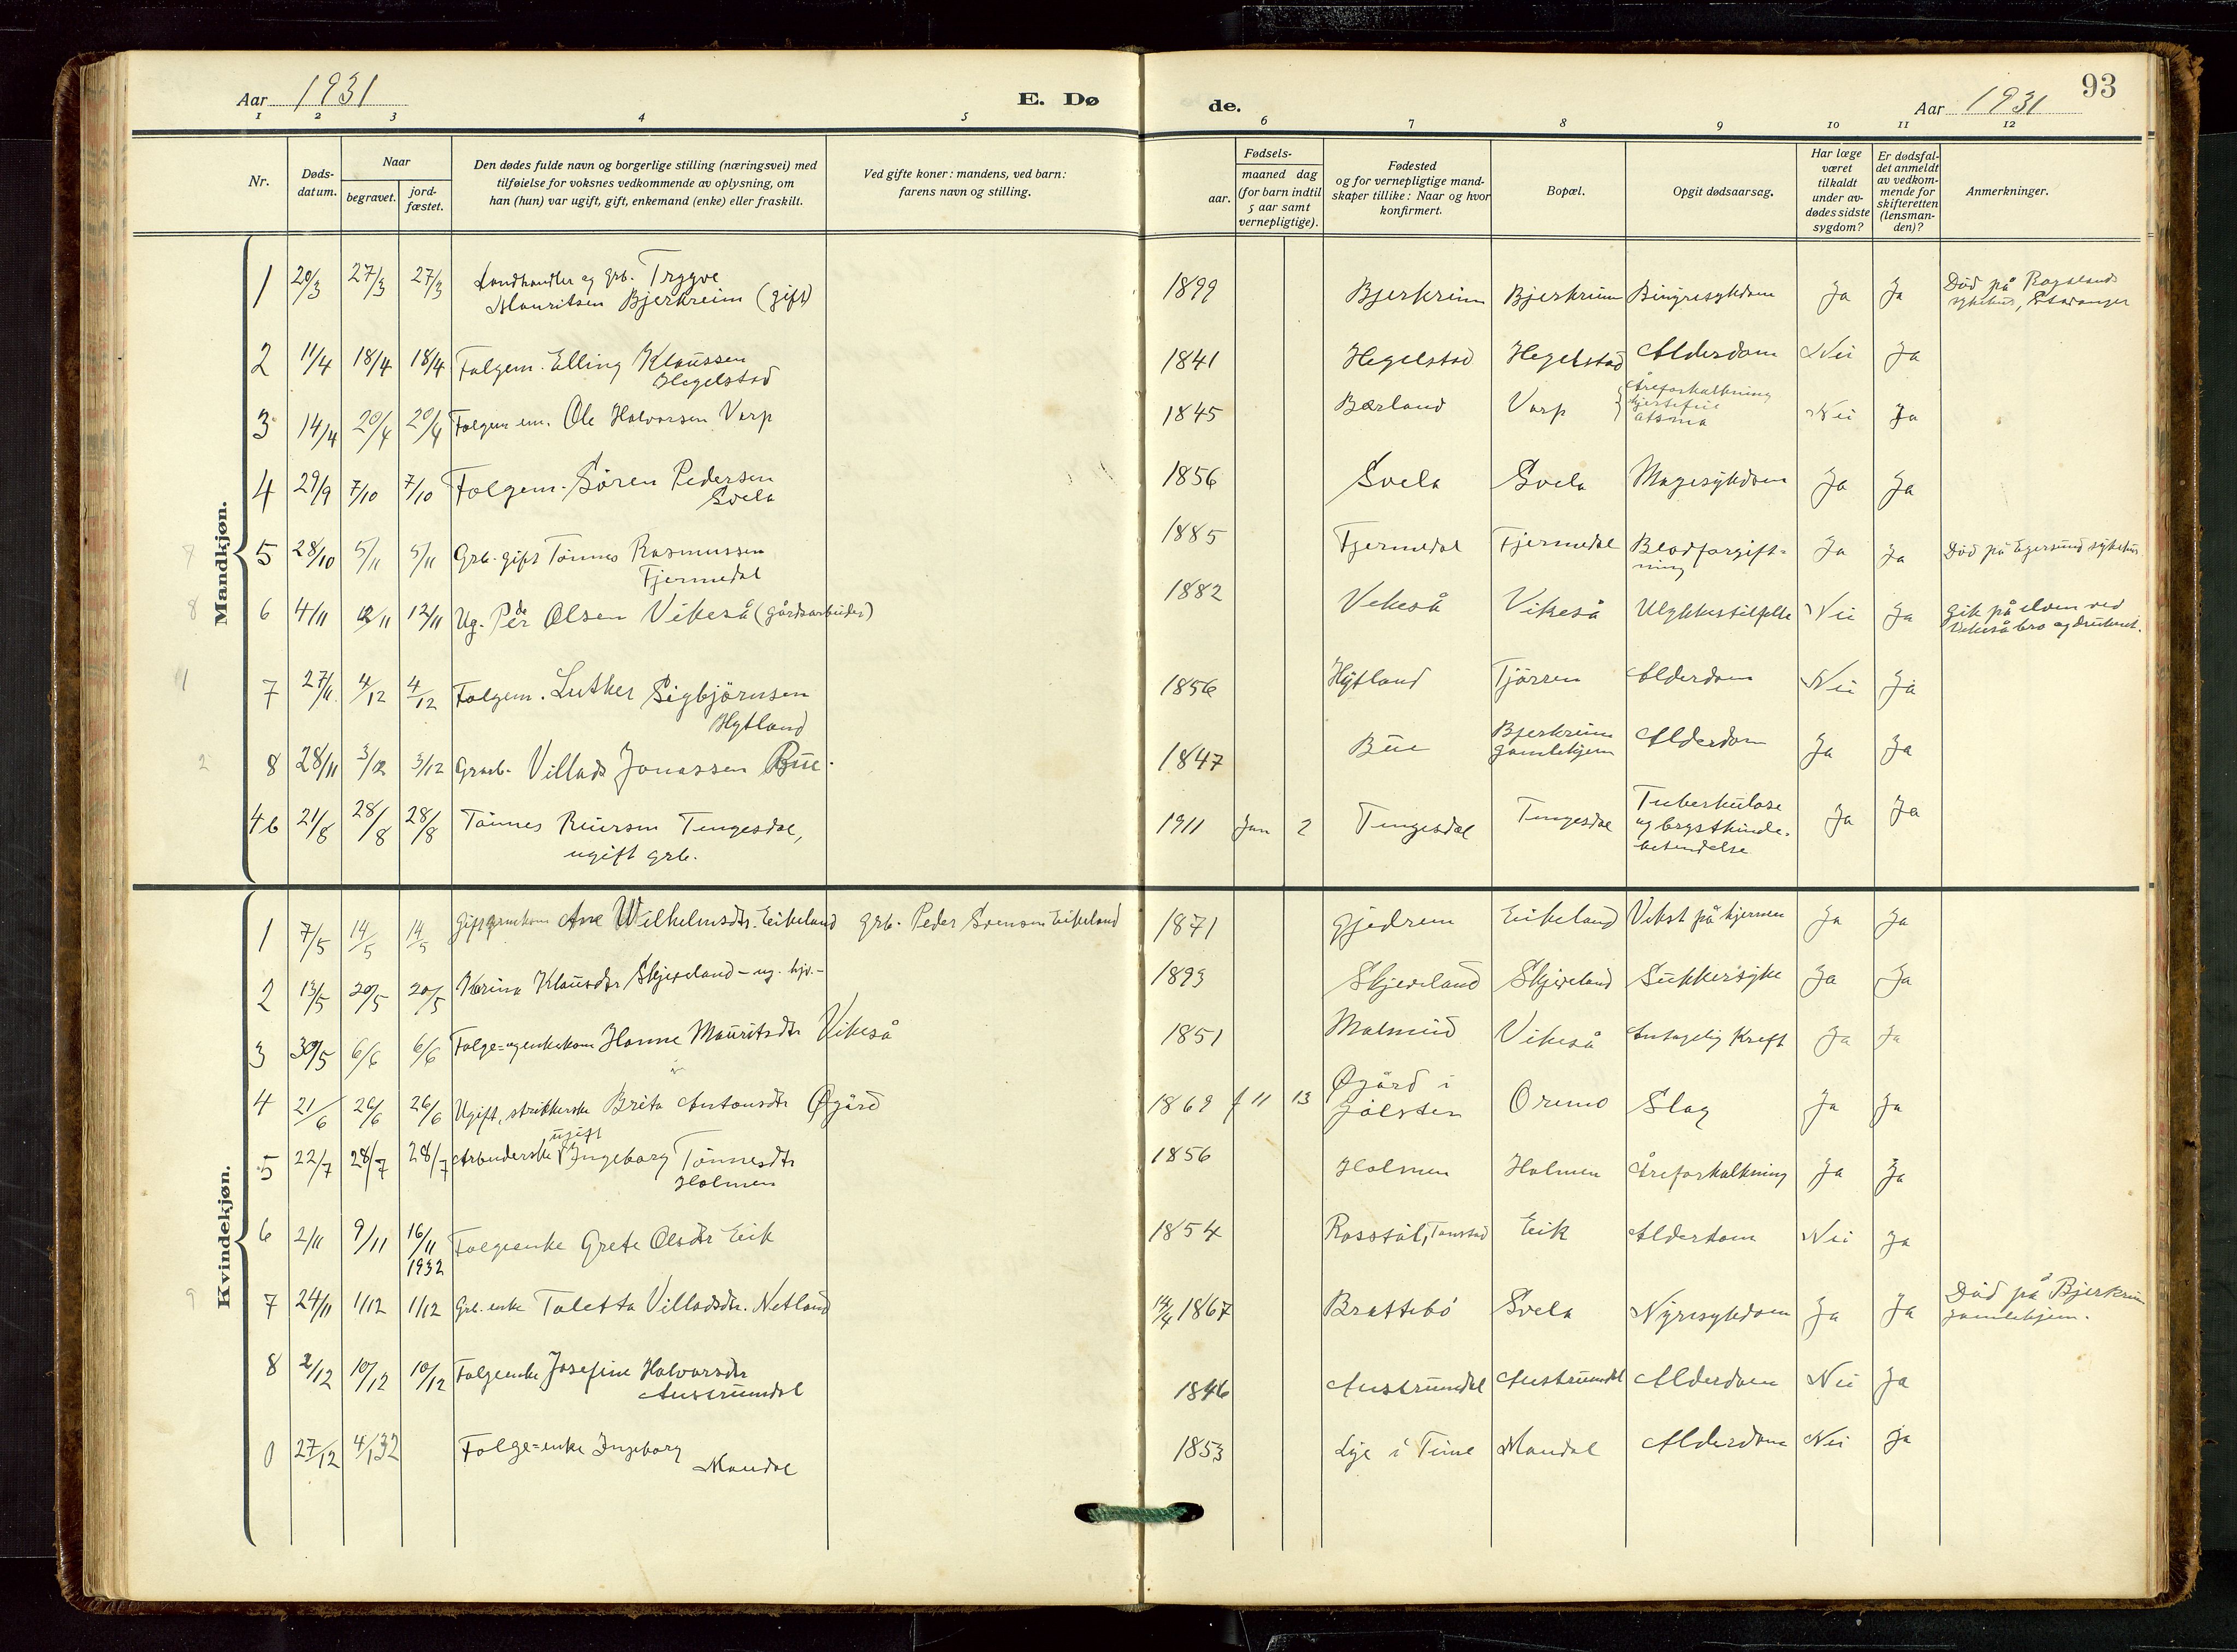 Aar 1931
E. Dø
de.
Aar 1931
93
1 2 3 4 5 6 7 8 9 10 11 12
Nr.
Døds-
datum.
Naar
begravet.
jord-
fæstet.
Den dødes fulde navn og borgerlige stilling (næringsvei) med
tilføielse for voksnes vedkommende av oplysning, om
han (hun) var ugift, gift, enkemand (enke) eller fraskilt.
Ved gifte koner: mandens, ved barn:
farens navn og stilling.
Fødsels-
aar.
maaned dag
(for barn indtil
5 aar samt
vernepligtige).
Fødested
og for vernepligtige mand-
skaper tillike: Naar og hvor
konfirmert.
Bopæl.
Opgit dødsaarsag.
Har læge
været
tilkaldt
under av-
dødes sidste
sygdom?
Er dødsfal-
det anmeldt
av vedkom-
mende for
skifteretten
(lensman-
den)?
Anmerkninger.
Mandkjøn.
1 20/3 27/3 27/3 Landhandler og grb. Trygve
Mauritsen Bjerkreim (gift)
1899 Bjerkreim Bjerkreim Binyresykdom Ja Ja Död på Rogalands
sykehus, Stavanger
2 11/4 18/4 18/4 Folgem. Elling Klaussen
Hegelstad
1841 Hegelstad Hegelstad Alderdom Nei Ja
3 14/4 20/4 20/4 Folgem em. Ole Halvorsen Varp
1845 Bærland Varp Åreforkalkning
hjertefeil
atsma
Nei Ja
4 29/9 7/10 7/10 Folgem. Sören Pedersen
Svela
1856 Svela Svela Magesykdom Ja Ja
7 5 28/10 5/11 5/11 Grb. gift Tönnes Rasmussen
Fjermedal
1885 Fjermedal Fjermedal Blodforgift=
ning
Ja Ja Död på Egersund sykehus.
8 6 4/11 12/11 12/11 Ug. Peder Olsen Vikeså (gårdsarbeider)
1882 Vikeså Vikeså Ulykkestilfelle Nei Ja Gik på elven ved
Vikeså bro og druknet.
1 7 27/11 4/12 4/12 Folgem. Luther Sigbjörnsen
Hytland
1856 Hytland Tjörren Alderdom Nei Ja
2 8 28/11 3/12 3/12 Grarb. Villads Jonassen Bue.
1847 Bue Bjerkreim
gamlehjem
Alderdom Ja Ja
4b 21/8 28/8 28/8 Tönnes Reiersen Tengesdal,
ugift grb.
1911 Jan 2 Tengesdal Tengesdal Tuberkulose
og brysthinde-
betendelse
Ja Ja
Kvindekjøn.
1 7/5 14/5 14/5 Gift Ane Wilhelmsdtr. Eikeland grb. Peder Svensen Eikeland
1871 Gjedrem Eikeland Vekst på hjernen Ja Ja
2 13/5 20/5 20/5 Karina Klausdtr Skjæveland - ug. hjv. -
1893 Skjæveland Skjæveland Sukkersyke Ja Ja
3 30/5 6/6 6/6 Folge=og enkekone Hanne Mauritsdtr Vikeså
1851 Malmeid Vikeså Antagelig Kreft Ja Ja
4 21/6 26/6 26/6 Ugift, strikkerske Brita Antonsdtr Øygård
1869 11 13 Øygård i
Jölster
Oremo Slag Ja Ja
5 22/7 28/7 28/7 Arbeiderske ugift Ingeborg Tönnesdtr
Holmen
1856 Holmen Holmen Åreforkalkning Ja Ja
6 2/11 9/11 16/11
1932
Folgeenke Grete Olsdtr Eik
1854 Rosstöl, Tonstad Eik Alderdom Nei Ja
9 7 24/11 1/12 1/12 Grb. enke Taletta Villadsdtr. Netland
14/4 1867 Brattebö Svela Nyresykdom Ja Ja Död på Bjerkreim
gamlehjem.
8 2/12 10/12 10/12 Folgeenke Josefine Halvorsdtr
Austrumdal
1846 Austrumdal Austrumdal Alderdom Nei Ja
27/12 4/1 32 Folge=enke Ingeborg
Mandal
1853 Lye i Time Mandal Alderdom Nei Ja